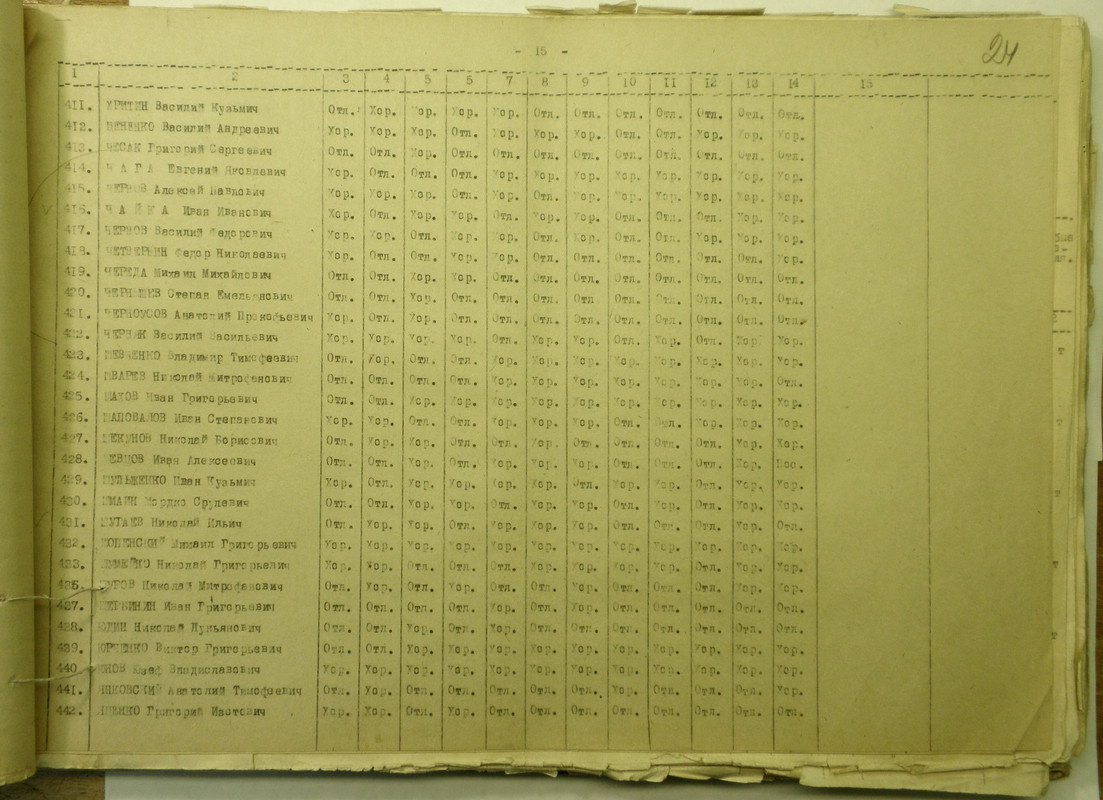 - 15 -
24
1 2 3 4 5 6 7 8 9 10 11 12 13 14 15
411. Василий Кузьмич Отл. Хор. Хор. Хор. Хор. Отл. Отл. Отл. Отл. Отл. Отл. Отл.
412. Василий Андреевич Хор. Хор. Хор. Отл. Хор. Хор. Хор. Отл. Отл. Хор. Хор. Хор.
413. ЧЕСАК Григорий Сергеевич Отл. Отл. Хор. Отл. Отл. Отл. Отл. Отл. Отл. Отл. Отл. Отл.
414. Ч А Г А Евгений Яковлевич Хор. Отл. Отл. Отл. Хор. Хор. Хор. Хор. Хор. Хор. Хор. Хор.
415. ЧЕРНОВ Алексей Павлович Хор. Хор. Хор. Отл. Хор. Отл. Хор. Хор. Хор. Хор. Хор. Хор.
416. Ч А Й К А Иван Иванович Хор. Отл. Хор. Хор. Отл. Хор. Хор. Отл. Отл. Отл. Хор. Хор.
417. ЧЕРНОВ Василий Федорович Хор. Хор. Отл. Хор. Хор. Отл. Хор. Отл. Отл. Хор. Хор. Хор.
418. ЧЕТВЕРКИН Федор Николаевич Хор. Отл. Отл. Хор. Хор. Отл. Отл. Отл. Отл. Отл. Отл. Хор.
419. ЧЕРЕДА Михаил Михайлович Отл. Отл. Хор. Хор. Отл. Отл. Отл. Отл. Отл. Отл. Отл. Отл.
420. ЧЕРНЫШЕВ Степан Емельянович Отл. Отл. Хор. Отл. Отл. Отл. Отл. Отл. Отл. Отл. Отл. Отл.
421. ЧЕРНОУСОВ Анатолий Прокофьевич Хор. Отл. Хор. Отл. Отл. Отл. Отл. Отл. Отл. Отл. Отл. Отл.
422. ЧЕРНЯК Василий Васильевич Хор. Хор. Хор. Хор. Отл. Хор. Хор. Отл. Хор. Отл. Хор. Хор.
423. ШЕВЧЕНКО Владимир Тимофеевич Отл. Хор. Отл. Отл. Хор. Хор. Хор. Хор. Хор. Хор. Хор. Хор.
424. ШВАРЕВ Николай Митрофанович Отл. Отл. Отл. Отл. Хор. Хор. Хор. Хор. Хор. Хор. Хор. Отл.
425. Иван Григорьевич Отл. Отл. Хор. Хор. Хор. Хор. Хор. Хор. Хор. Хор. Хор. Хор.
426. ШАПОВАЛОВ Иван Степанович Хор. Хор. Отл. Отл. Хор. Хор. Хор. Отл. Отл. Хор. Хор. Хор.
427. ШЕКУНОВ Николай Борисович Отл. Хор. Хор. Отл. Отл. Хор. Отл. Отл. Отл. Отл. Хор. Хор.
428. ШЕВЦОВ Иван Алексеевич Отл. Отл. Хор. Отл. Хор. Хор. Хор. Отл. Отл. Отл. Хор. Пос.
429. ШУЛЬЖЕНКО Иван Кузьмич Хор. Отл. Хор. Хор. Хор. Хор. Отл. Хор. Хор. Отл. Хор. Хор.
430. Мордко Срулевич Отл. Отл. Хор. Хор. Отл. Хор. Хор. Отл. Хор. Отл. Отл. Хор.
431. ШУГАЕВ Николай Ильич Отл. Хор. Хор. Отл. Хор. Хор. Хор. Отл. Отл. Отл. Хор. Отл.
432. Михаил Григорьевич Хор. Хор. Хор. Хор. Хор. Хор. Хор. Хор. Хор. Хор. Хор. Хор.
433. Николай Григорьевич Хор. Хор. Отл. Отл. Отл. Хор. Хор. Хор. Хор. Отл. Хор. Хор.
436. Николай Митрофанович Отл. Хор. Отл. Хор. Отл. Отл. Хор. Отл. Отл. Отл. Хор. Хор.
437. ЩЕРБИНИН Иван Григорьевич Отл. Отл. Отл. Отл. Хор. Отл. Отл. Отл. Отл. Отл. Отл. Отл.
438. ЮДИН Николай Лукьянович Отл. Отл. Хор. Отл. Хор. Отл. Отл. Отл. Отл. Отл. Отл. Отл.
439. ЮРЧЕНКО Виктор Григорьевич Отл. Отл. Хор. Хор. Хор. Хор. Хор. Хор. Хор. Хор. Хор. Хор.
440. Владиславович Хор. Хор. Хор. Хор. Хор. Хор. Хор. Хор. Хор. Хор. Хор. Хор.
441. ЯНКОВСКИЙ Анатолий Тимофеевич Отл. Хор. Отл. Отл. Отл. Отл. Отл. Хор. Отл. Отл. Отл. Хор.
442. Григорий Изотович Хор. Хор. Отл. Хор. Отл. Отл. Отл. Отл. Отл. Отл. Отл. Отл.